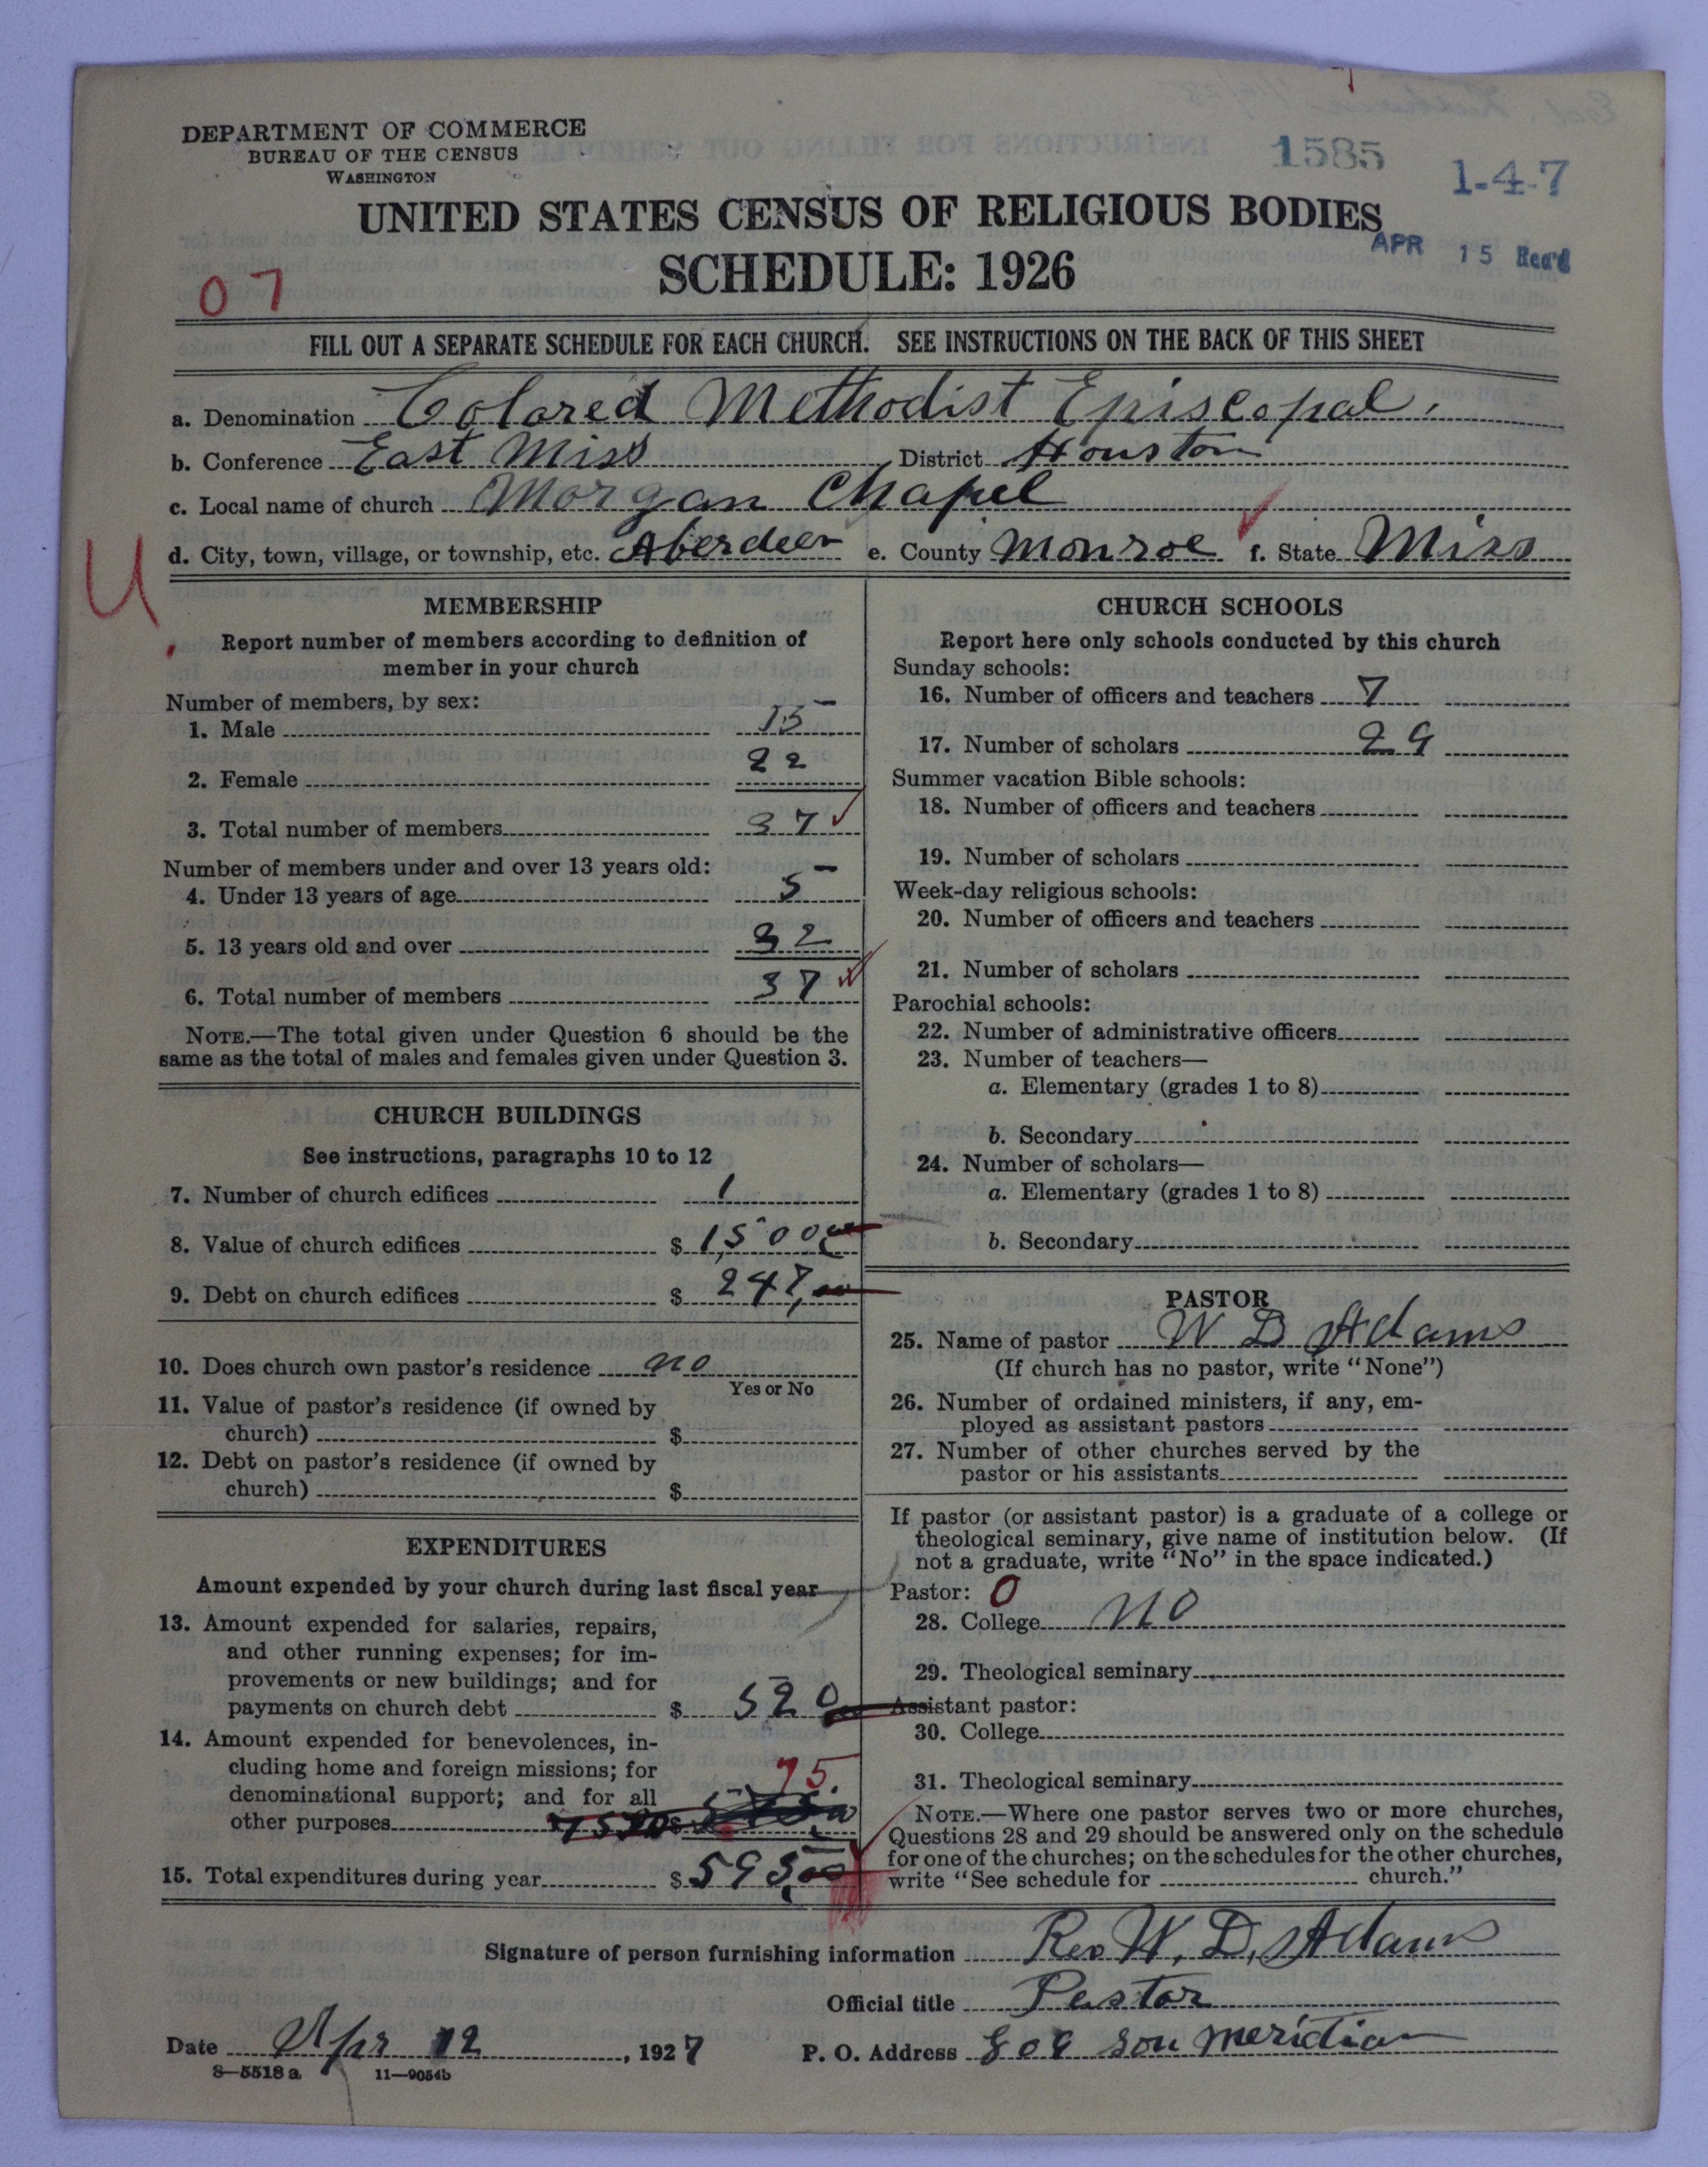 DEPARTMENT OF COMMERCE
BUREAU OF THE CENSUS
WASHINGTON
1585
1-4-7
UNITED STATES CENSUS OF RELIGIOUS BODIES
APR 15 Rec'd
SCHEDULE: 1926
07
FILL OUT A SEPARATE SCHEDULE FOR EACH CHURCH. SEE INSTRUCTIONS ON THE BACK OF THIS SHEET
a. Denomination Colored Methodist Episcopal.
b. Conference East Miss District Houston
c. Local name of church Morgan Chapel
d. City, town, village, or township, etc. Aberdeen e. County Monroe f. State Miss
U
MEMBERSHIP
Report number of members according to definition of
member in your church
Number of members, by sex:
1. Male 15
2. Female 22
3. Total number of members 37
Number of members under and over 13 years old:
4. Under 13 years of age 5
5. 13 years old and over 32
6. Total number of members 37
NOTE.—The total given under Question 6 should be the
same as the total of males and females given under Question 3.
CHURCH BUILDINGS
See instructions, paragraphs 10 to 12
7. Number of church edifices 1
8. Value of church edifices $ 1,500
9. Debt on church edifices $ 247,00
10. Does church own pastor's residence no
Yes or No
11. Value of pastor's residence (if owned by
church) $
12. Debt on pastor's residence (if owned by
church) $
EXPENDITURES
Amount expended by your church during last fiscal year
13. Amount expended for salaries, repairs,
and other running expenses; for im-
provements or new buildings; and for
payments on church debt $ 520
14. Amount expended for benevolences, in-
cluding home and foreign missions; for
denominational support; and for all
other purposes $ 75.
15. Total expenditures during year $ 595,00
CHURCH SCHOOLS
Report here only schools conducted by this church
Sunday schools:
16. Number of officers and teachers 7
17. Number of scholars 29
Summer vacation Bible schools:
18. Number of officers and teachers
19. Number of scholars
Week-day religious schools:
20. Number of officers and teachers
21. Number of scholars
Parochial schools:
22. Number of administrative officers
23. Number of teachers—
a. Elementary (grades 1 to 8)
b. Secondary
24. Number of scholars—
a. Elementary (grades 1 to 8)
b. Secondary
PASTOR
25. Name of pastor W D Adams
(If church has no pastor, write "None")
26. Number of ordained ministers, if any, em-
ployed as assistant pastors
27. Number of other churches served by the
pastor or his assistants
If pastor (or assistant pastor) is a graduate of a college or
theological seminary, give name of institution below. (If
not a graduate, write "No" in the space indicated.)
Pastor: 0
28. College no
29. Theological seminary
Assistant pastor:
30. College
31. Theological seminary
NOTE.—Where one pastor serves two or more churches,
Questions 28 and 29 should be answered only on the schedule
for one of the churches; on the schedules for the other churches,
write "See schedule for church."
Signature of person furnishing information Rev W. D. Adams
Official title Pastor
Date Apr 12, 1927 P. O. Address 809 Sou Meridian
8—5518 a 11—9054b